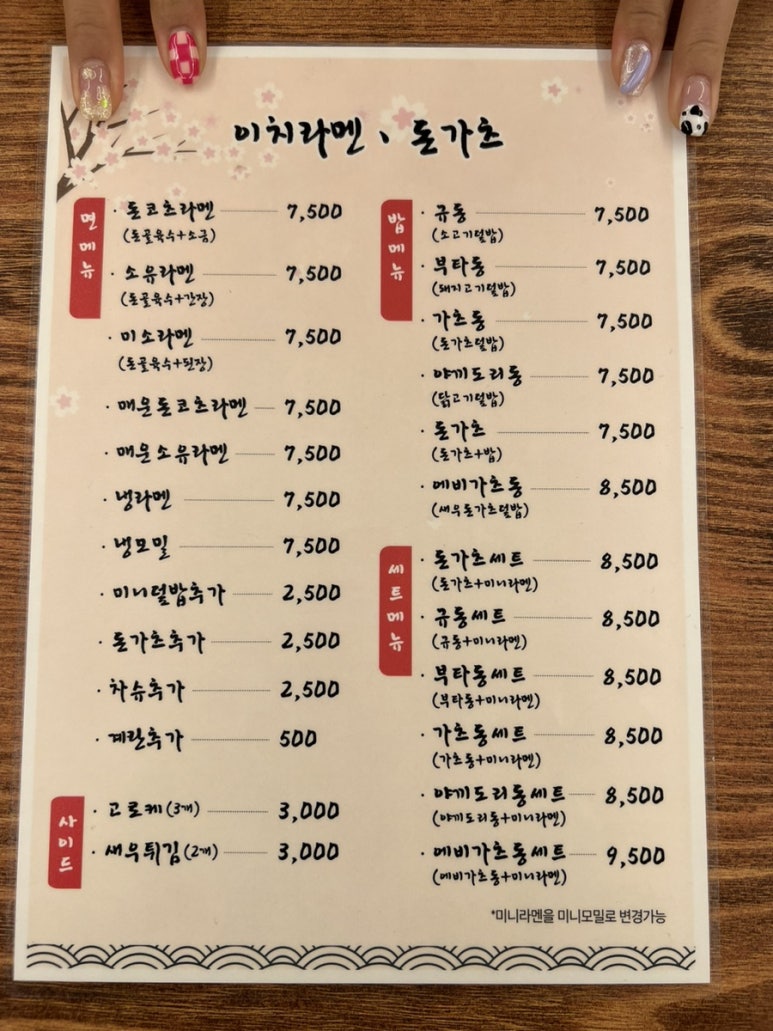 이치라멘、돈가츠
면메뉴
· 돈코츠라멘 7,500
(돈골육수+소금)
· 소유라멘 7,500
(돈골육수+간장)
· 미소라멘 7,500
(돈골육수+된장)
· 매운돈코츠라멘 7,500
· 매운소유라멘 7,500
· 냉라멘 7,500
· 냉모밀 7,500
· 미니덮밥추가 2,500
· 돈가츠추가 2,500
· 차슈추가 2,500
· 계란추가 500
사이드
· 고로케(3개) 3,000
· 새우튀김(2개) 3,000
밥메뉴
· 규동 7,500
(소고기덮밥)
· 부타동 7,500
(돼지고기덮밥)
· 가츠동 7,500
(돈가츠덮밥)
· 야끼도리동 7,500
(닭고기덮밥)
· 돈가츠 7,500
(돈가츠+밥)
· 에비가츠동 8,500
(새우돈가츠덮밥)
세트메뉴
· 돈가츠세트 8,500
(돈가츠+미니라멘)
· 규동세트 8,500
(규동+미니라멘)
· 부타동세트 8,500
(부타동+미니라멘)
· 가츠동세트 8,500
(가츠동+미니라멘)
· 야끼도리동세트 8,500
(야끼도리동+미니라멘)
· 에비가츠동세트 9,500
(에비가츠동+미니라멘)
*미니라멘을 미니모밀로 변경가능